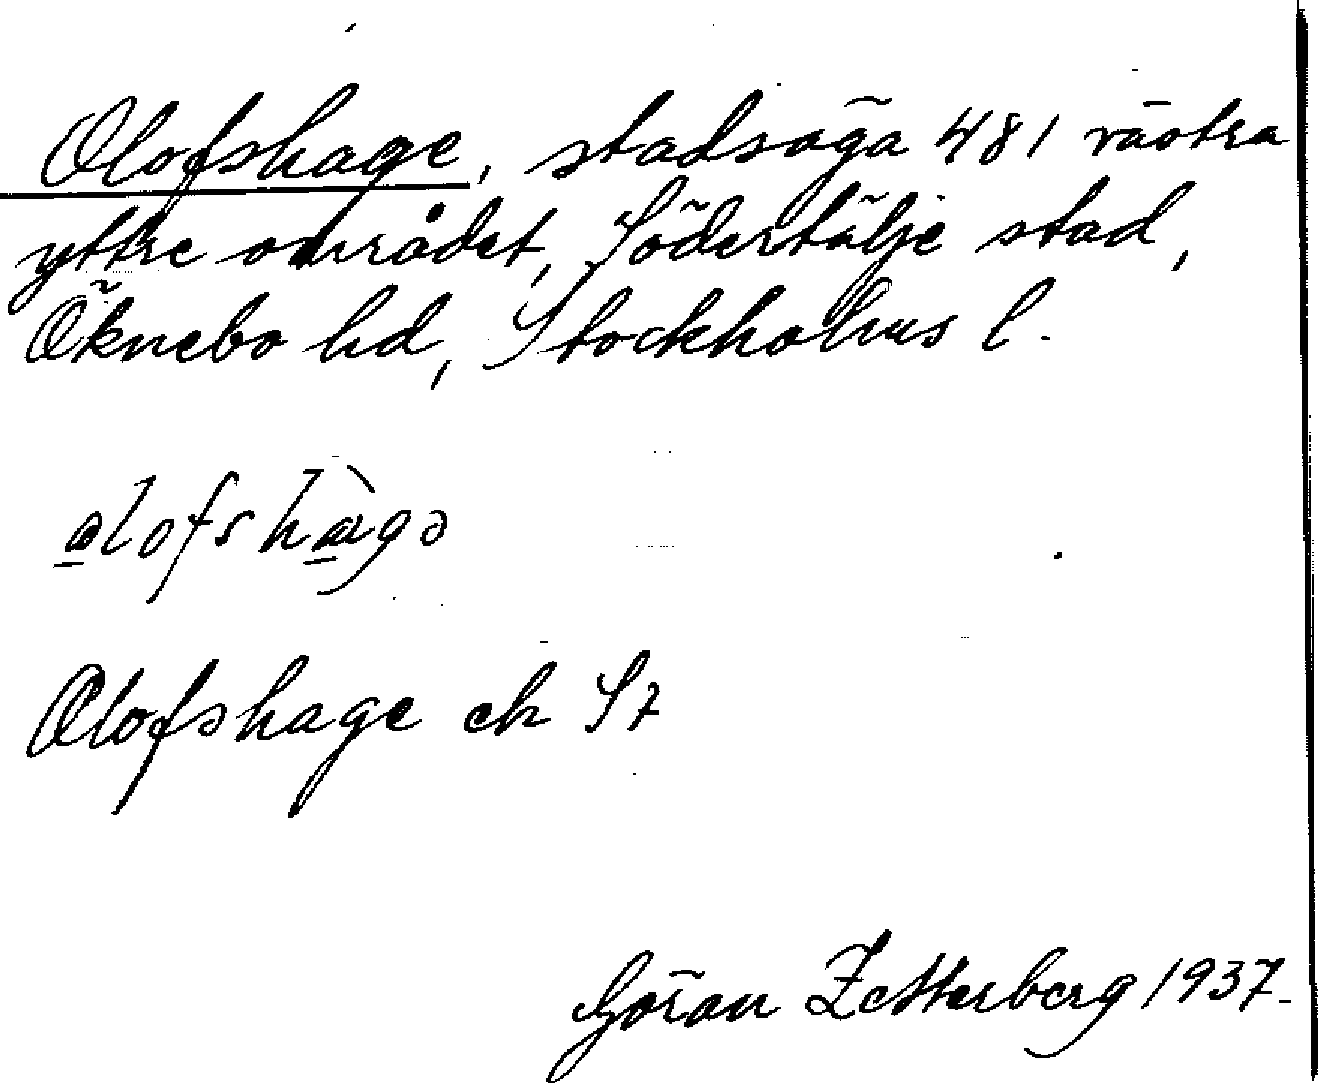 Olofshage, stadsäga 481 västra
yttre området, Södertälje stad,
Öknebo hd, Stockholms l.
Olofshage ek S7
Göran Zetterberg 1937.